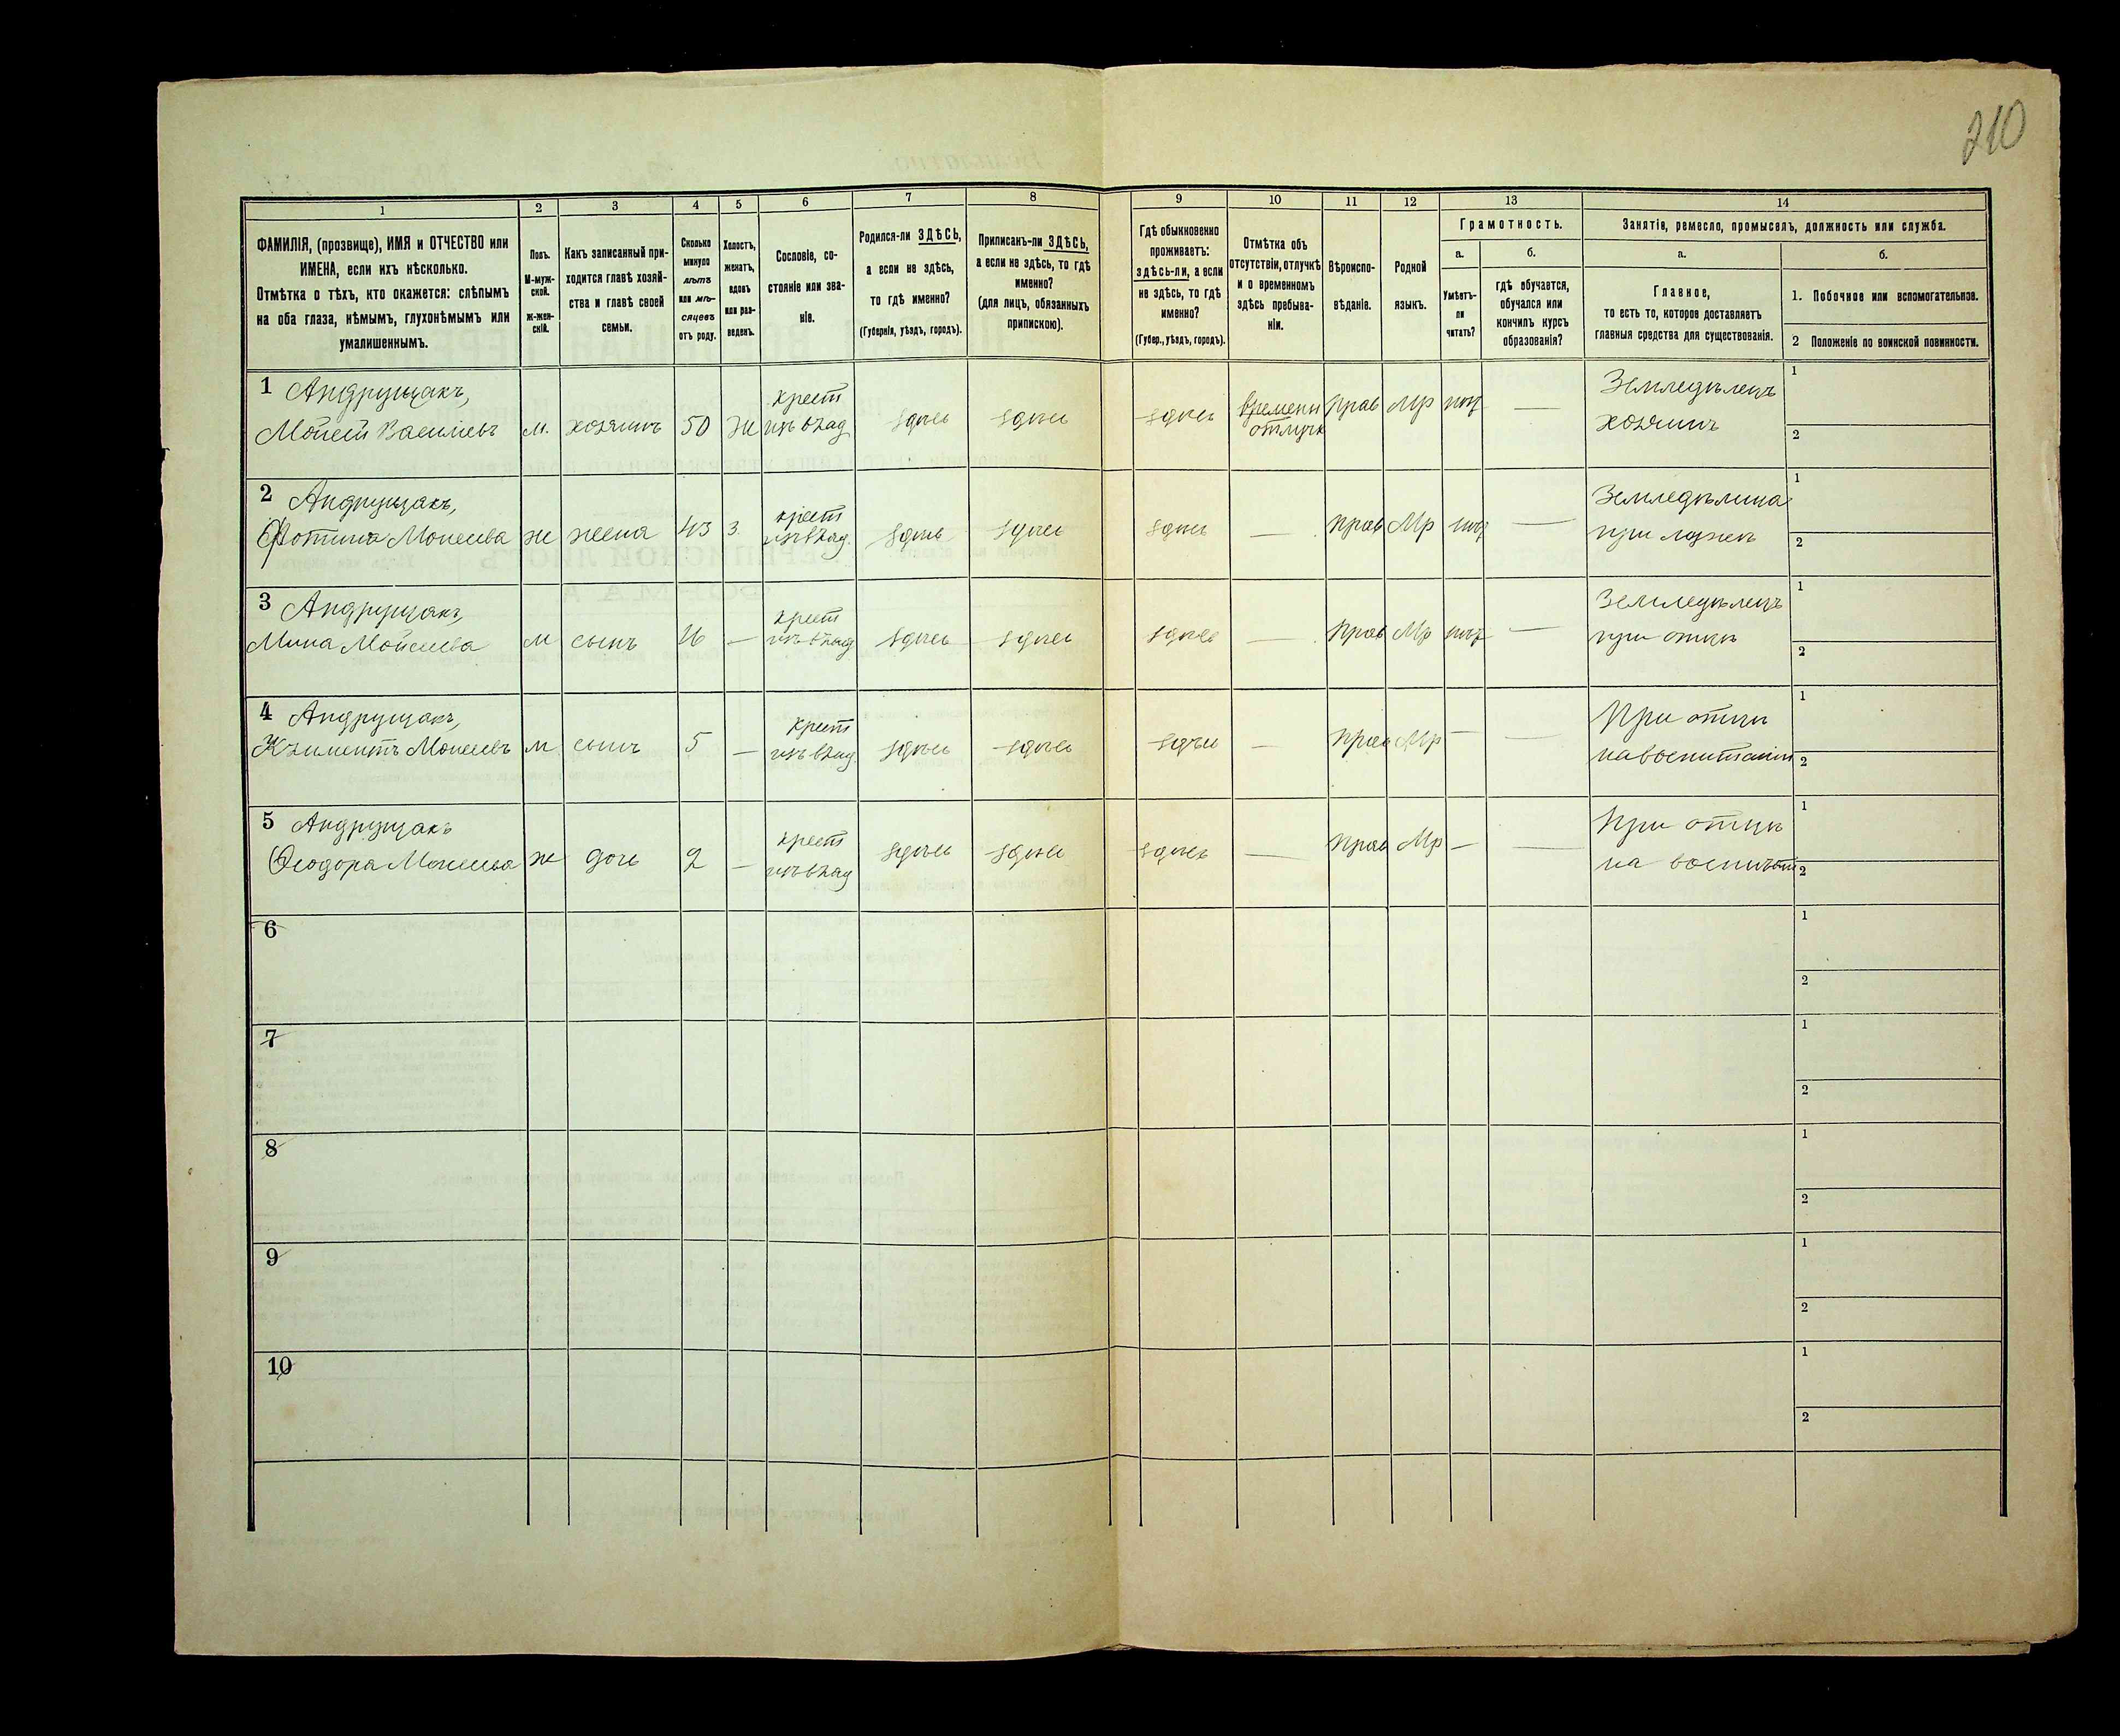 210
1
2
3
4
5
6
7
8
9
10
11
12
13
14
ФАМИЛІЯ, (прозвище), ИМЯ и ОТЧЕСТВО или
ИМЕНА, если ихъ нѣсколько.
Отмѣтка о тѣхъ, кто окажется: слѣпымъ
на оба глаза, нѣмымъ, глухонѣмымъ или
умалишеннымъ.
Полъ.
М-муж-
ской.
ж-жен-
скій.
Какъ записанный при-
ходится главѣ хозяй-
ства и главѣ своей
семьи.
Сколько
минуло
лѣтъ
или мѣ-
сяцевъ
отъ роду.
Холостъ,
женатъ,
вдовъ
или раз-
веденъ.
Сословіе, со-
стояніе или зва-
ніе.
Родился-ли ЗДѢСЬ,
а если не здѣсь,
то гдѣ именно?
(Губернія, уѣздъ, городъ).
Приписанъ-ли ЗДѢСЬ,
а если не здѣсь, то гдѣ
именно?
(для лицъ, обязанныхъ
припискою).
Гдѣ обыкновенно
проживаетъ:
здѣсь-ли, а если
не здѣсь, то гдѣ
именно?
(Губер., уѣздъ, городъ).
Отмѣтка объ
отсутствіи, отлучкѣ
и о временномъ
здѣсь пребыва-
ніи.
Вѣроиспо-
вѣданіе.
Родной
языкъ.
Грамотность.
а.
Умѣетъ-
ли
читать?
б.
гдѣ обучается,
обучался или
кончилъ курсъ
образованія?
Занятіе, ремесло, промыселъ, должность или служба.
а.
Главное,
то есть то, которое доставляетъ
главныя средства для существованія.
б.
1. Побочное или вспомогательное.
2 Положеніе по воинской повинности.
1 Андрущакъ,
Мойсей Василіевъ м. хозяинъ 50 Ж крест изъ влад здѣсь здѣсь здѣсь времени отлучк прав Мр нѣт — Земледѣлецъ хозяинъ 1 2
2 Андрущакъ,
Фотина Моисеева ж жена 43 з. крест изъ влад. здѣсь здѣсь здѣсь — прав Мр нѣт — Земледѣлица при мужѣ 1 2
3 Андрущакъ,
Мина Мойсеева м сынъ 16 — крест изъ влад здѣсь здѣсь здѣсь — прав Мр нѣт — Земледѣлецъ при отцѣ 1 2
4 Андрущакъ,
Климентъ Моисеевъ м сынъ 5 — крест изъ влад. здѣсь здѣсь здѣсь — прав Мр — — При отцѣ на воспитаніи 1 2
5 Андрущакъ
Ѳеодора Моисеева ж дочь 2 — крест изъ влад здѣсь здѣсь здѣсь — прав Мр — — При отцѣ на воспитані 1 2
6 1 2
7 1 2
8 1 2
9 1 2
10 1 2